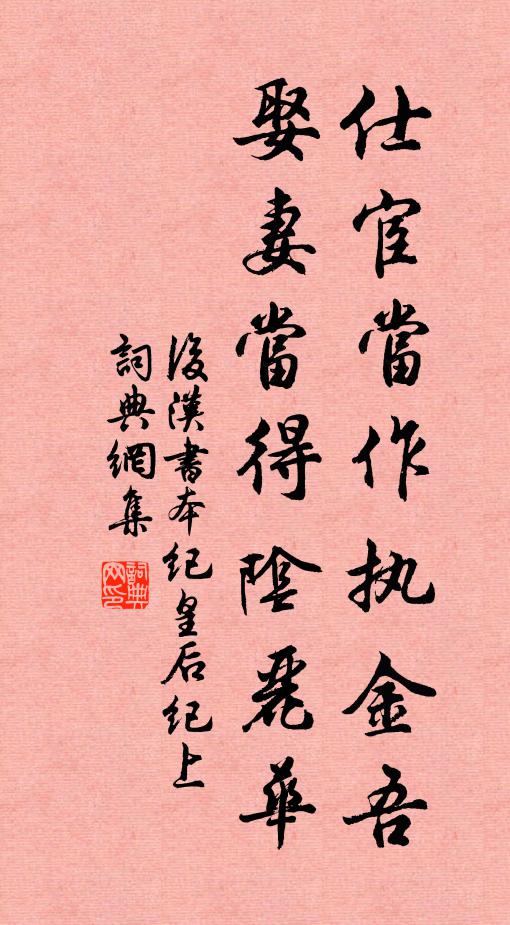 仕宦當作执金吾
娶妻當得陰麗華
後漢書本纪皇后纪上
詞典網集
詞典网印